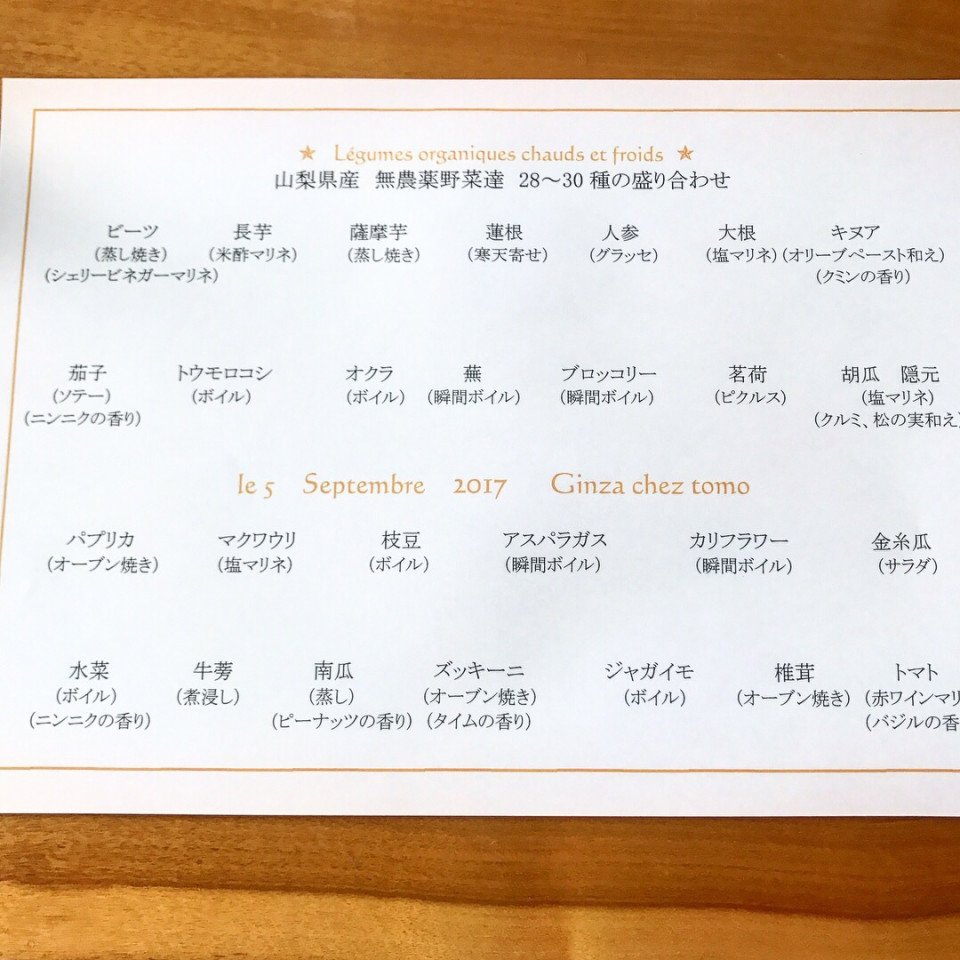 ★ Légumes organiques chauds et froids ★
山梨県産 無農薬野菜達 28～30種の盛り合わせ
ビーツ 長芋 薩摩芋 蓮根 人参 大根 キヌア
(蒸し焼き) (米酢マリネ) (蒸し焼き) (寒天寄せ) (グラッセ) (塩マリネ) (オリーブペースト和え)
(シェリービネガーマリネ) (クミンの香り)
茄子 トウモロコシ オクラ 蕪 ブロッコリー 茗荷 胡瓜 隠元
(ソテー) (ボイル) (ボイル) (瞬間ボイル) (瞬間ボイル) (ピクルス) (塩マリネ)
(ニンニクの香り) (クルミ、松の実和え)
le 5 Septembre 2017 Ginza chez tomo
パプリカ マクワウリ 枝豆 アスパラガス カリフラワー 金糸瓜
(オーブン焼き) (塩マリネ) (ボイル) (瞬間ボイル) (瞬間ボイル) (サラダ)
水菜 牛蒡 南瓜 ズッキーニ ジャガイモ 椎茸 トマト
(ボイル) (煮浸し) (蒸し) (オーブン焼き) (ボイル) (オーブン焼き) (赤ワインマリ
(ニンニクの香り) (ピーナッツの香り) (タイムの香り) (バジルの香